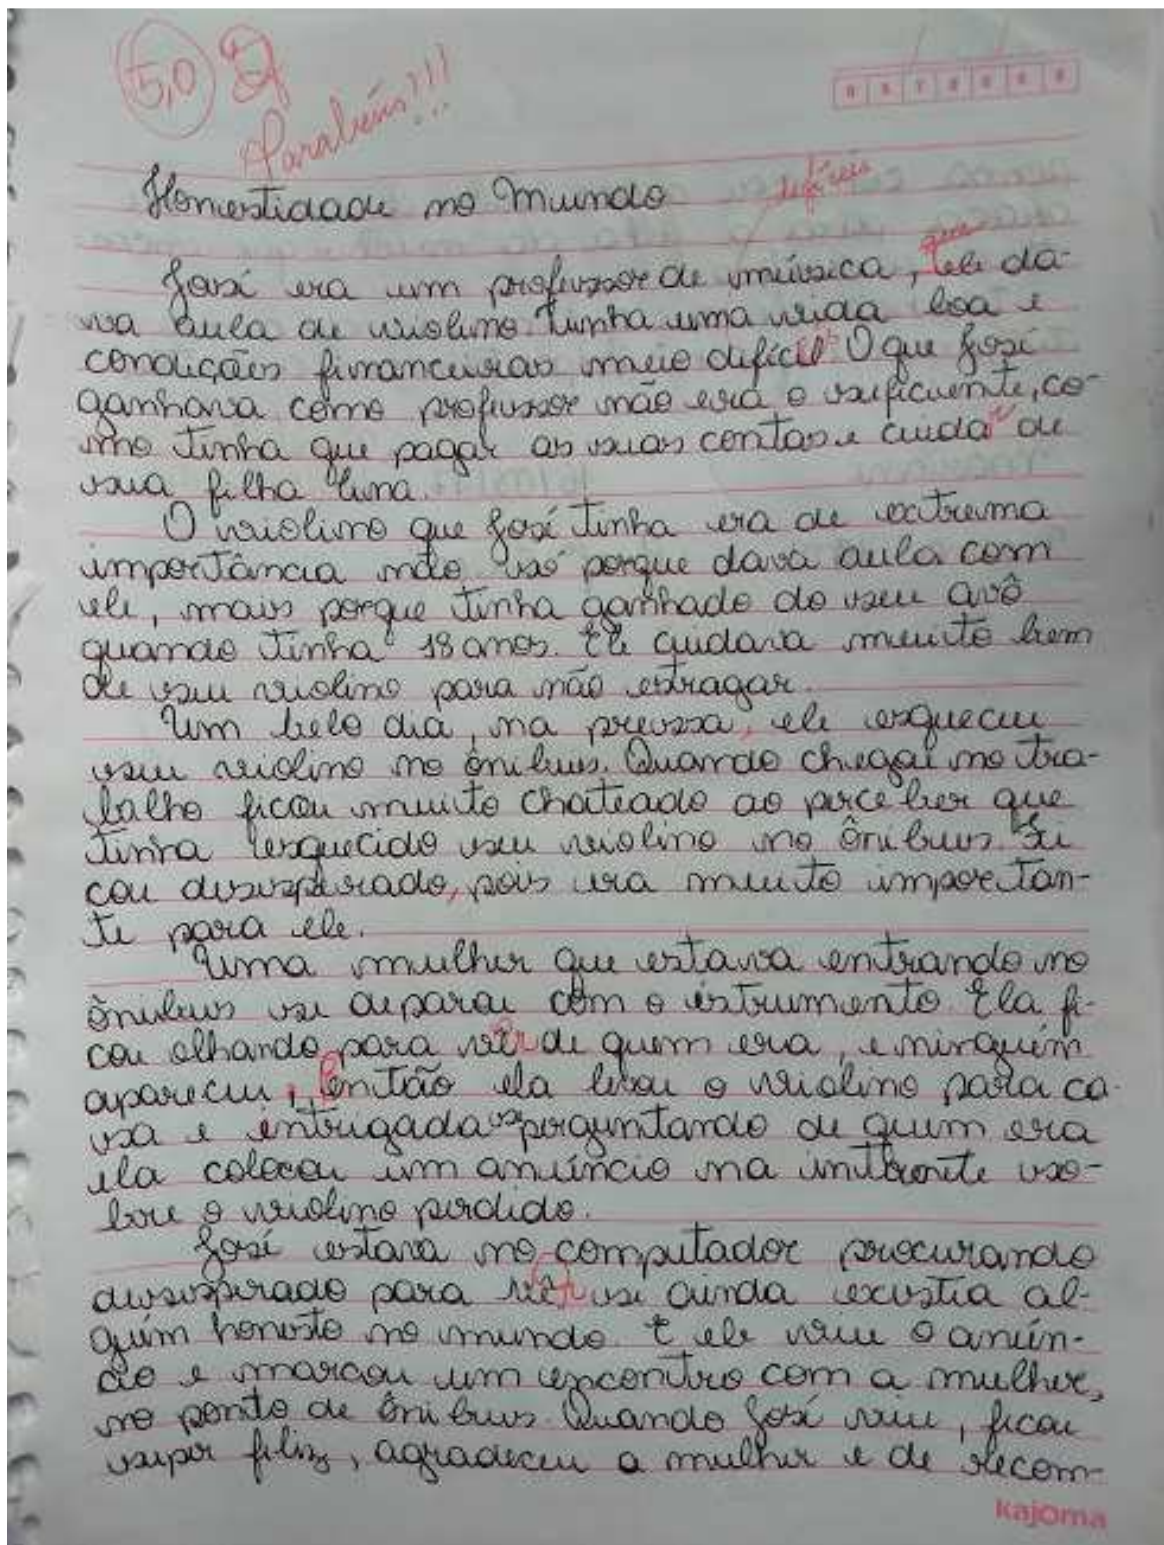 5,0
Parabéns!!!
D S T Q Q S S
Honestidade no Mundo
difíceis
que
José era um professor de música, ele da-
va aula de violino. Tinha uma vida boa e
condições financeiras meio difícil. O que José
ganhava como professor não era o suficiente, co-
mo tinha que pagar as suas contas e cuidar de
sua filha Luna.
O violino que José tinha era de extrema
importância não só porque dava aula com
ele, mais porque tinha ganhado do seu avô
quando tinha 18 anos. Ele cuidava muito bem
de seu violino para não estragar.
Um belo dia, na pressa, ele esqueceu
seu violino no ônibus. Quando chegou no tra-
balho ficou muito chateado ao perceber que
tinha esquecido seu violino no ônibus. Fi
cou desesperado, pois era muito importan-
te para ele.
Uma mulher que estava entrando no
ônibus se deparou com o istrumento. Ela fi-
cou olhando para ver de quem era, e ninguém
apareceu, Então ela levou o violino para ca-
sa e intrigada se perguntando de quem era
ela colocou um anúncio na internete so-
bre o violino perdido.
José estava no computador procurando
desesperado para ver se ainda existia al-
guém honesto no mundo. E ele viu o anún-
cio e marcou um encontro com a mulher,
no ponto de ônibus. Quando José viu, ficou
super feliz, agradeceu a mulher e de recom-
kajoma